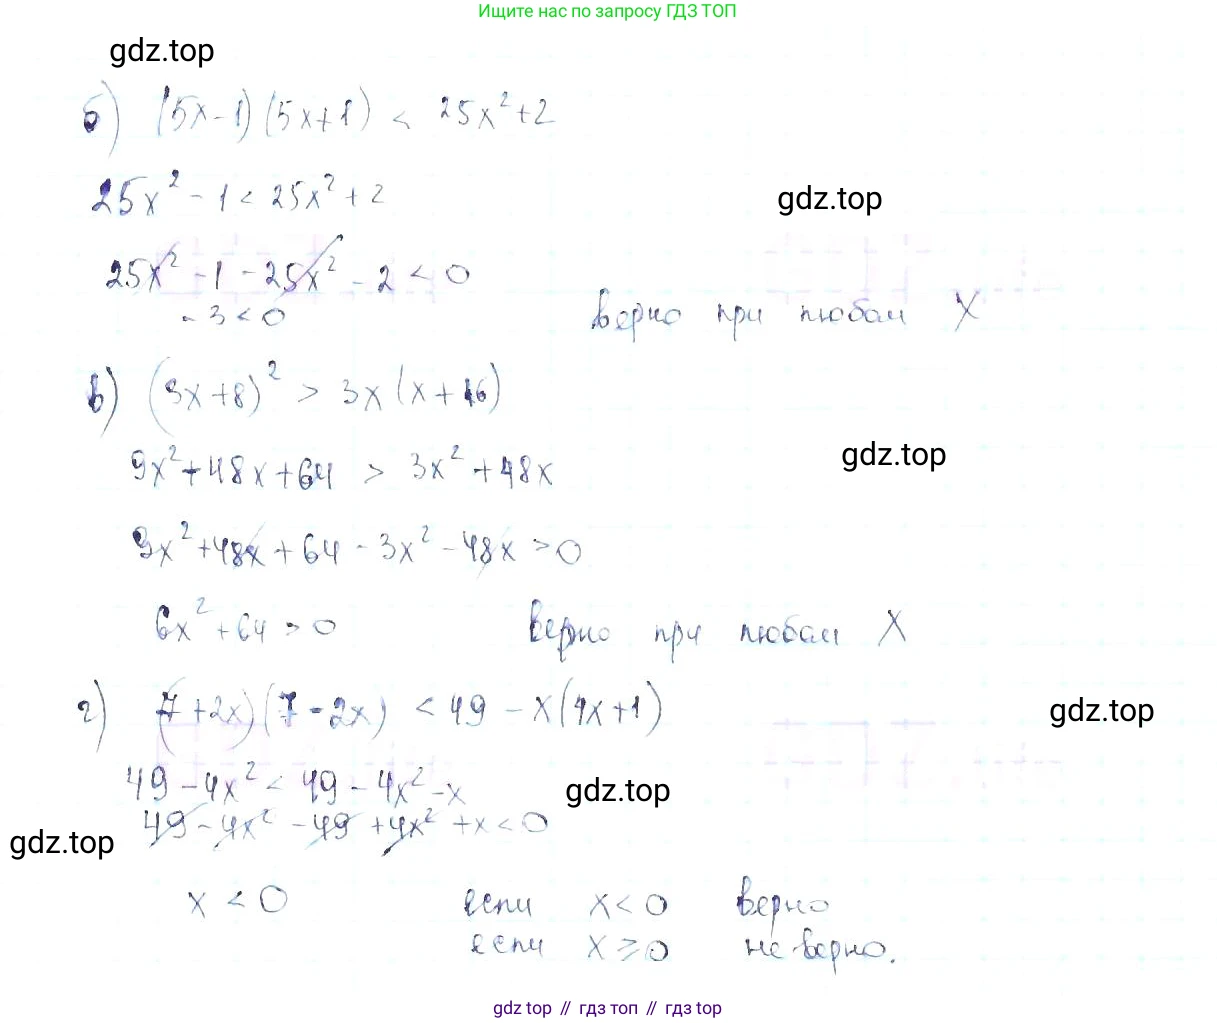 Ищите нас по запросу ГДЗ ТОП
gdz.top
б) (5x-1)(5x+1) < 25x²+2
25x² - 1 < 25x² + 2
gdz.top
25x² - 1 - 25x² - 2 < 0
- 3 < 0 верно при любом X
в) (3x+8)² > 3x(x+16)
gdz.top
9x²+48x+64 > 3x²+48x
9x²+48x+64-3x²-48x>0
6x²+64>0 верно при любом X
г) (7+2x)(7-2x) < 49 - x(4x+1)
gdz.top
49-4x² < 49-4x²-x
gdz.top
49-4x²-49+4x²+x<0
gdz.top
x < 0 если x<0 верно
если x≥0 не верно.
gdz top // гдз топ // гдз top